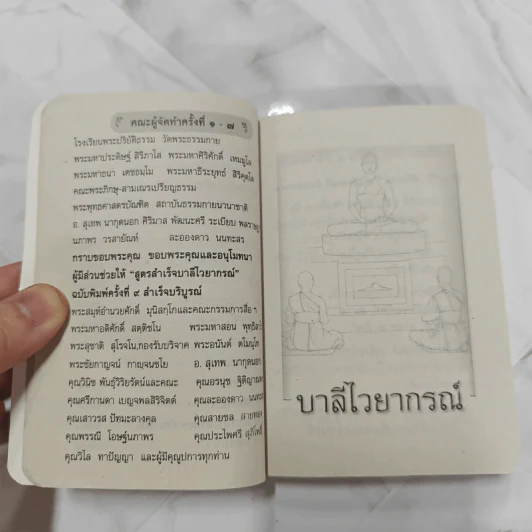 คณะผู้จัดทำครั้งที่ ๑ - ๗
โรงเรียนพระปริยัติธรรม วัดพระธรรมกาย
พระมหาประดิษฐ์ สิริภาโส พระมหาศิริศักดิ์
พระมหาธนา เตชธมฺโม พระมหาธีระยุทธ์
คณะพระภิกษุ-สามเณรเปรียญธรรม
พระพุทธศาสตรบัณฑิต สถาบันธรรมกายนานาชาติ
อ. สุเทพ นากุดนอก ศิริมาล พัฒนะศรี ระเบียบ
นภาพร วรสายัณห์ ละอองดาว นนทะสร
กราบขอบพระคุณ ขอบพระคุณและอนุโมทนา
ผู้มีส่วนช่วยให้ "สูตรสำเร็จบาลีไวยากรณ์"
ฉบับพิมพ์ครั้งที่ ๙ สำเร็จบริบูรณ์
พระสมุห์อำนวยศักดิ์ มุนิสกฺโกและคณะกรรมการสื่อ ฯ
พระมหาอดิศักดิ์ พระมหาสอน
พระสุชาติ สุโรจโน,กองรับบริจาค พระอนันต์
พระชัยกาญจน์ กาญจนชโย อ. สุเทพ นากุดนอก
คุณวินิช พันธุ์วิริยรัตน์และคณะ คุณอรนุช
คุณศรีกานดา เบญจพลสิริจิตต์ คุณละอองดาว
คุณเสาวรส ปัทมะลางคุล คุณสายชล
คุณพรรณี โอษฐ์นภาพร คุณประไพศรี
คุณวิไล ทาปัญญา และผู้มีคุณูปการทุกท่าน
บาลีไวยากรณ์